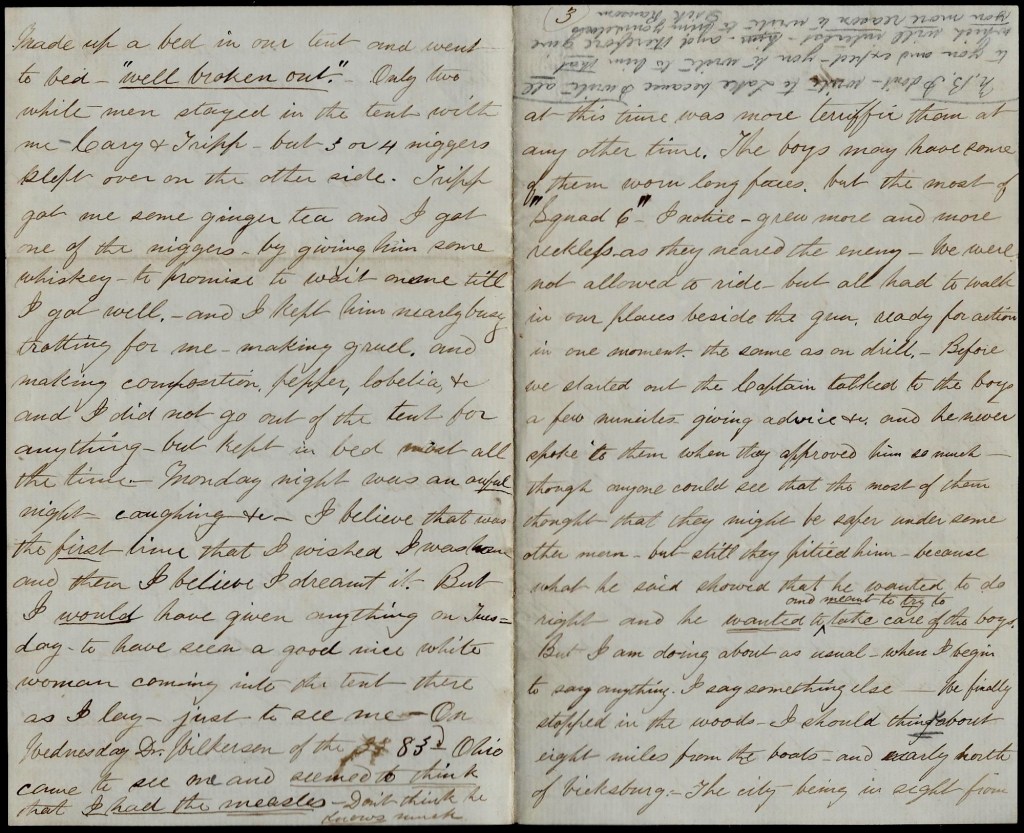 Made up a bed in our tent and went
to bed - "well broken out". - Only two
white men stayed in the tent with
me - Cary & Tripp - but 3 or 4 niggers
slept over on the other side. Tripp
got me some ginger tea and I got
one of the niggers - by giving him some
whiskey - to promise to wait on me till
I got well. - and I kept him nearly busy
trotting for me - making gruel, and
making composition, pepper, lobelia, &c
and I did not go out of the tent for
anything - but kept in bed most all
the time. - Monday night was an awful
night - coughing &c - I believe that was
the first time that I wished I was home
and then I believe I dreamt it. But
I would have given anything on Tues=
day - to have seen a good nice white
woman coming into the tent there
as I lay - just to see me - On
Wednesday Dr. Wilkerson of the 83d Ohio
came to see me and seemed to think
that I had the measles - Don't think he
knows much
3
N.B. I don't - write to Lake because I write all
to you and expect - you to write to him that
which will interest - him - and therefore give
you more reason to write to
Dick Ransom
at this time was more terriffic than at
any other time. The boys may have some
of them worn long faces. but the most of
"Squad 6" - I notice - grew more and more
reckless - as they neared the enemy - We were
not allowed to ride - but all had to walk
in our places beside the gun, ready for action
in one moment the same as on drill. - Before
we started out the Captain talked to the boys
a few minutes giving advice &c. and he never
spoke to them when they approved him so much -
though anyone could see that the most of them
thought that they might be safer under some
other man - but still they pitied him - because
what he said showed that he wanted to do
right and he wanted to and meant to try to take care of the boys.
But I am doing about as usual - when I begin
to say anything. I say something else - We finally
stopped in the woods - I should think about
eight miles from the boats - and nearly north
of Vicksburg. - The city being in sight from